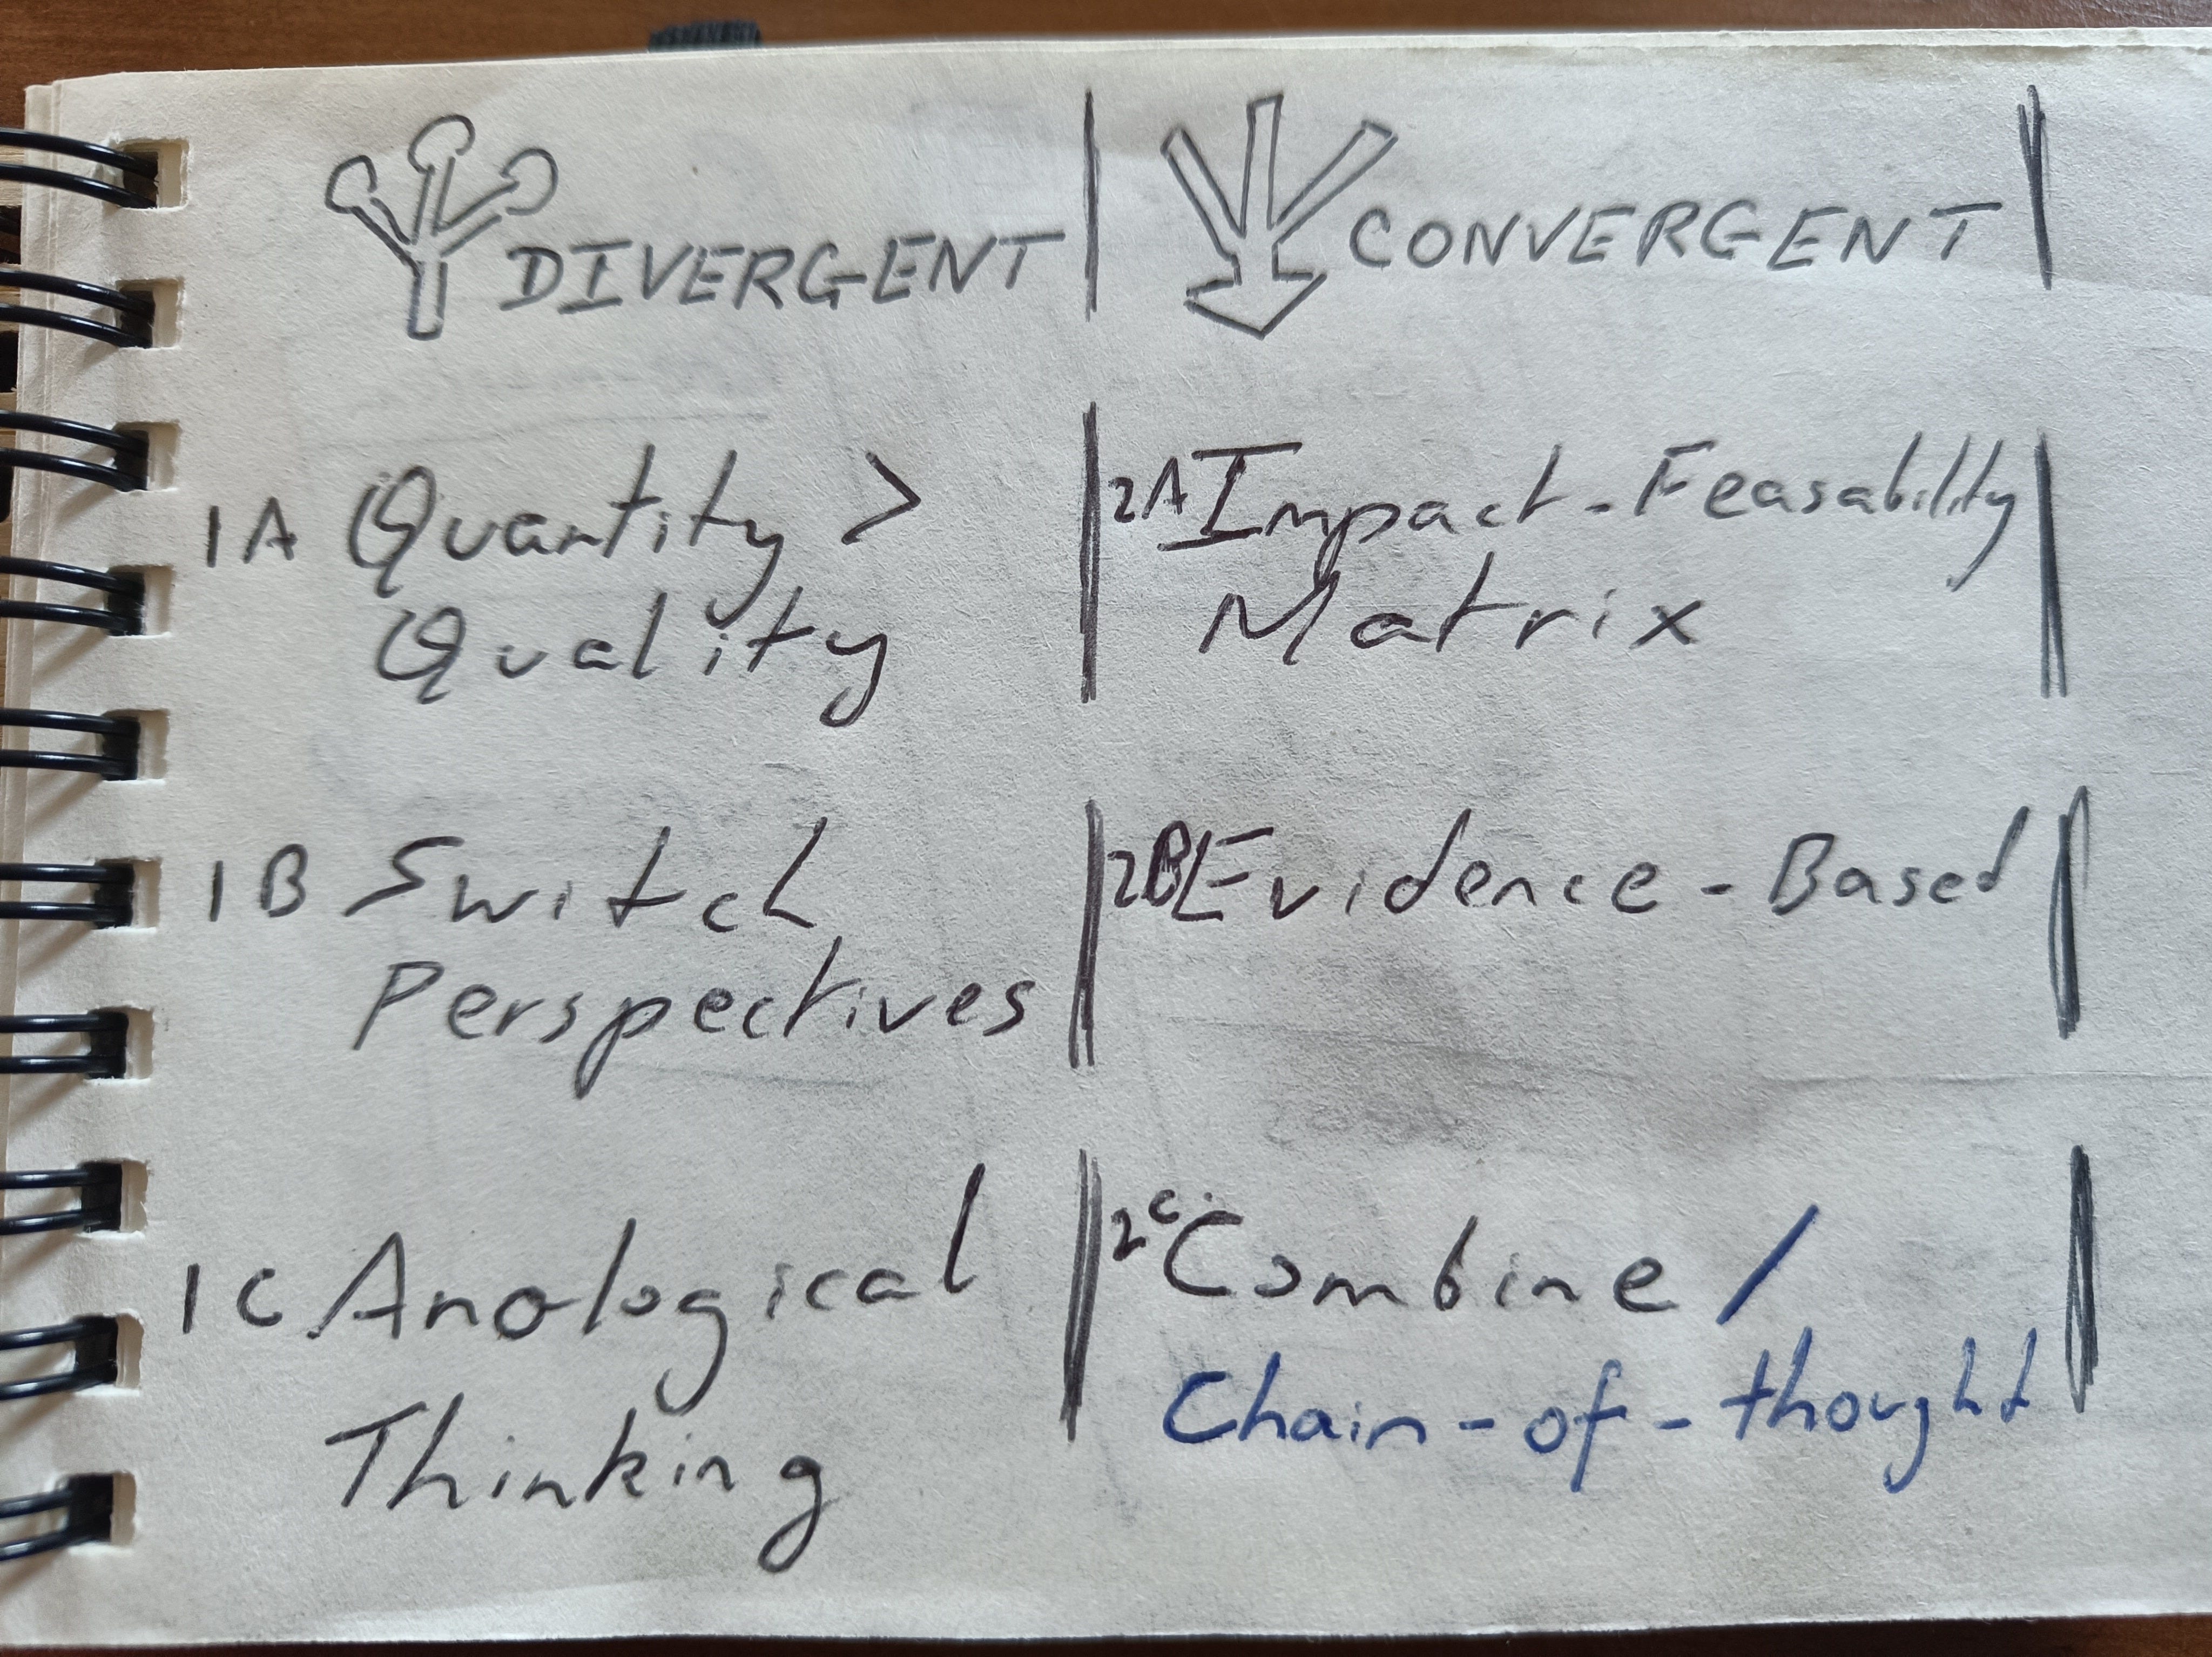 DIVERGENT
CONVERGENT
1A Quantity >
Quality
2A Impact-Feasability
Matrix
1B Switch
Perspectives
2B Evidence-Based
1C Anological
Thinking
2C Combine /
Chain-of-thought